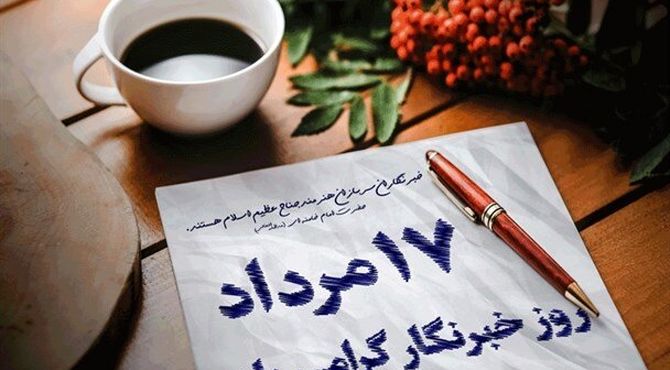 خبرنگاران سربازان هنرمند جناح عظیم اسلام هستند.
حضرت امام خامنه ای
۱۷ مرداد
روز خبرنگار گرامی